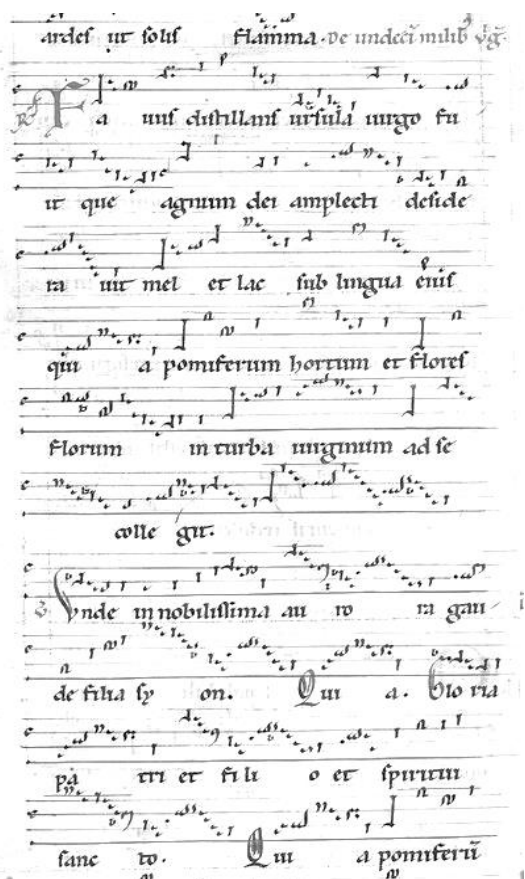 ardes ut solis flamma. De undecī milib vḡ.
Fa uus distillans ursula uirgo fu
it que agnum dei amplecti deside
ra uit mel et lac sub lingua eius
qui a pomiferum hortum et flores
florum in turba uirginum ad se
colle git.
Vnde in nobilissima au ro ra gau
de filia sy on. Qui a. Glo ria
pa tri et fi li o et spiritui
sanc to. Qui a pomiferū